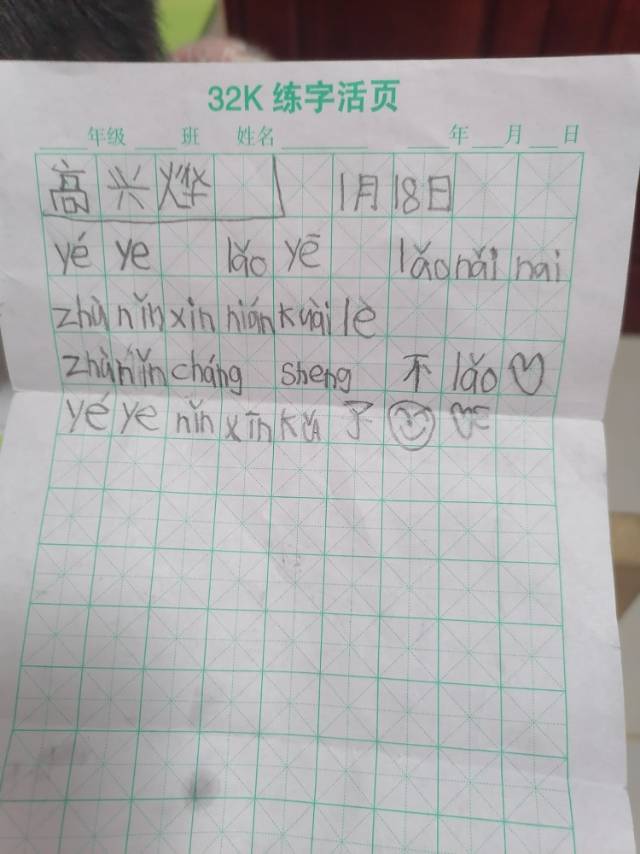 32K 练字活页
年级 班 姓名 年 月 日
高兴烨 1月18日
yé ye lǎo yē lǎo nǎi nai
zhù nǐn xin nián kuài lè
zhù nǐn cháng sheng 不 lǎo
yé ye nǐn xīn kǔ 了